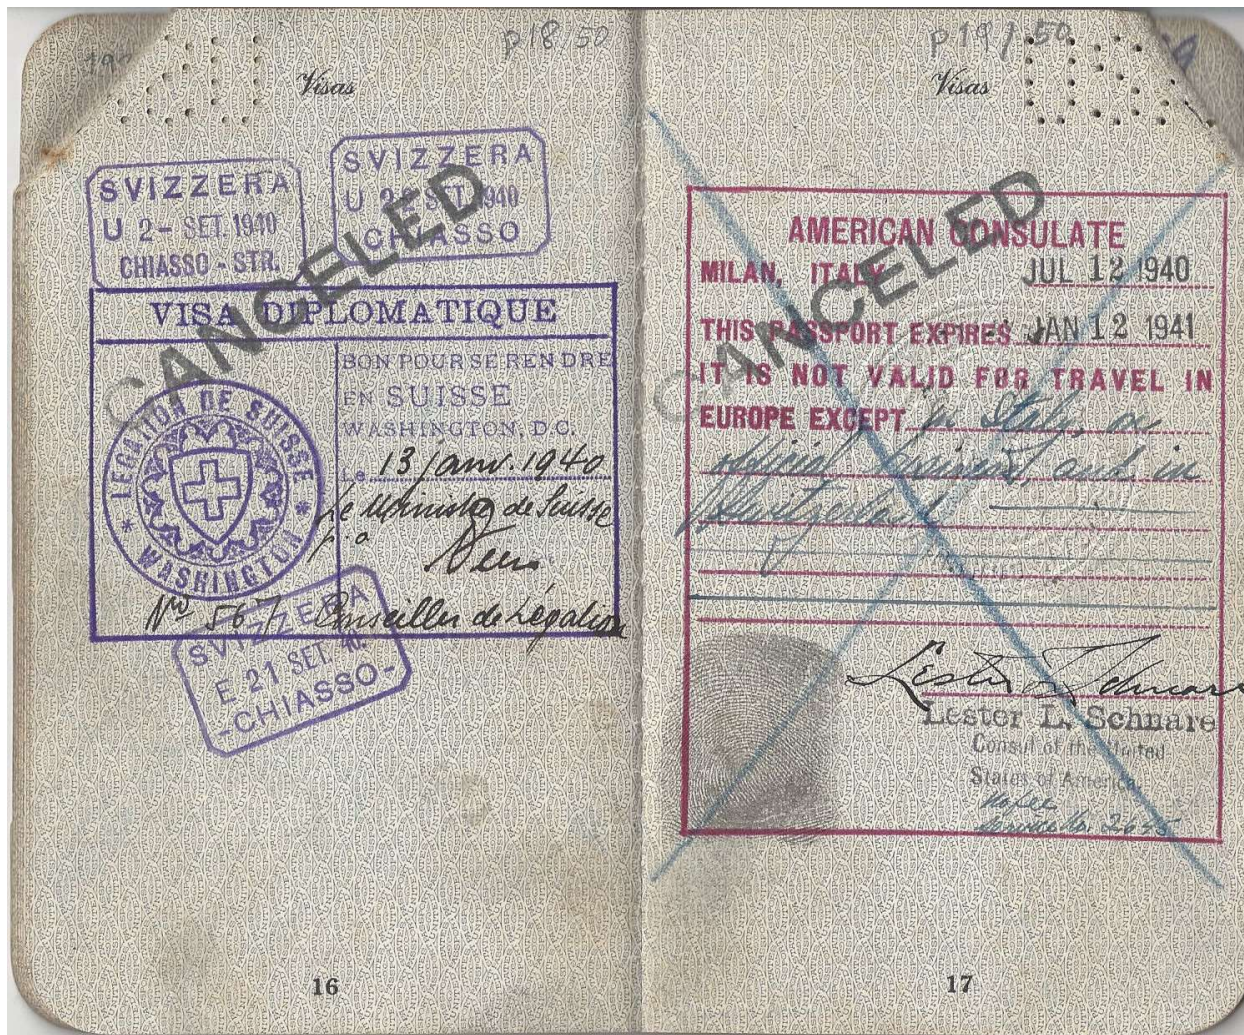 p18/50
Visas
SVIZZERA
U 2 - SET. 1940
CHIASSO - STR.
SVIZZERA
U SET. 1940
CHIASSO
CANCELED
VISA DIPLOMATIQUE
BON POUR SE RENDRE
EN SUISSE
WASHINGTON, D.C.
Le 13 janv. 1940
Le Ministre de Suisse
p. a
LEGATION DE SUISSE
* WASHINGTON *
No 567 Conseiller de Légation
SVIZZERA
E 21 SET. 40.
-CHIASSO-
16
p19/50
Visas
CANCELED
AMERICAN CONSULATE
MILAN, ITALY JUL 12 1940
THIS PASSPORT EXPIRES JAN 12 1941
IT IS NOT VALID FOR TRAVEL IN
EUROPE EXCEPT in Italy, on
official business, and in
Switzerland
Lester L. Schnare
Lester L. Schnare
Consul of the United
States of America
No fee
Service No. 2645
17